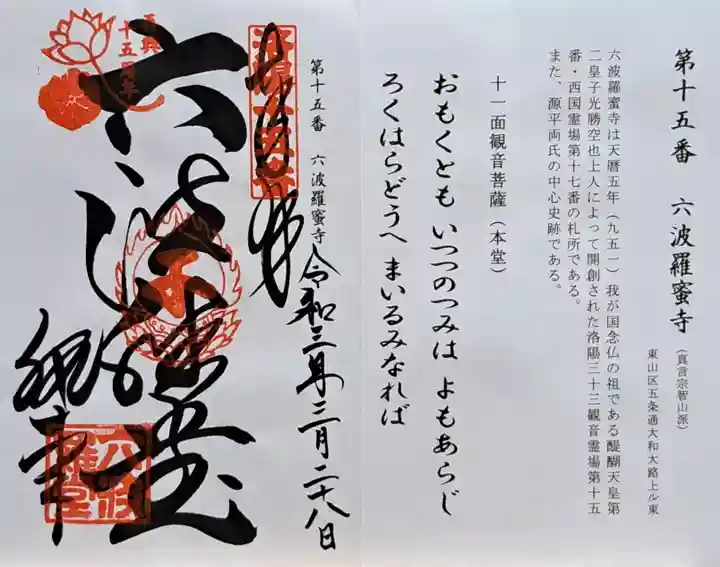 第十五番 六波羅蜜寺
（真言宗智山派）
東山区五条通大和大路上ル東
六波羅蜜寺は天暦五年（九五一）我が国念仏の祖である醍醐天皇第
二皇子光勝空也上人によって開創された洛陽三十三観音霊場第十五
番・西国霊場第十七番の札所である。
また、源平両氏の中心史跡である。
十一面観音菩薩（本堂）
おもくとも いつつのつみは よもあらじ
ろくはらどうへ まいるみなれば
令和三年三月二十八日
第十五番 六波羅蜜寺
奉拝
六波羅堂